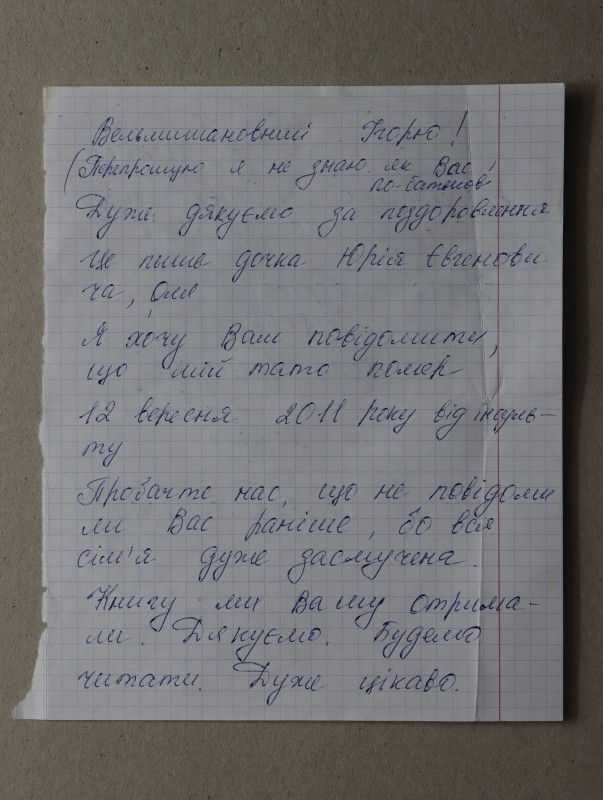 Вельмишановний Ігорю!
(Перепрошую я не знаю як Вас
по-батькові
Дуже дякуємо за поздоровлення
Це пише дочка Юрія Євгенови
ча, Оля
Я хочу Вам повідомити,
що мій тато помер
12 вересня 2011 року від інсуль-
ту
Пробачте нас, що не повідоми
ли Вас раніше, бо вся
сім'я дуже засмучена.
Книгу ми Вашу отрима-
ли. Дякуємо. Будемо
читати. Дуже цікаво.